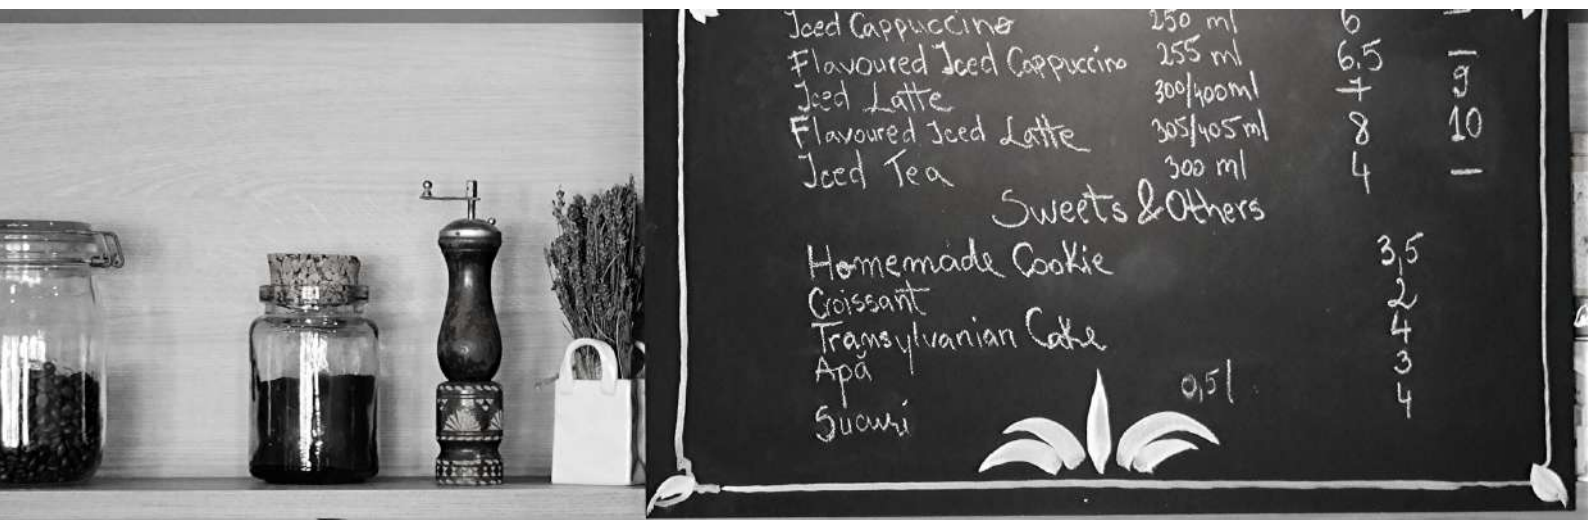 Iced Cappuccino 250 ml 6 –
Flavoured Iced Cappuccino 255 ml 6,5 –
Iced Latte 300/400ml 7 9
Flavoured Iced Latte 305/405ml 8 10
Iced Tea 300 ml 4 –
Sweets & Others
Homemade Cookie 3,5
Croissant 2
Transylvanian Cake 4
Apă 0,5l 3
Sucuri 4